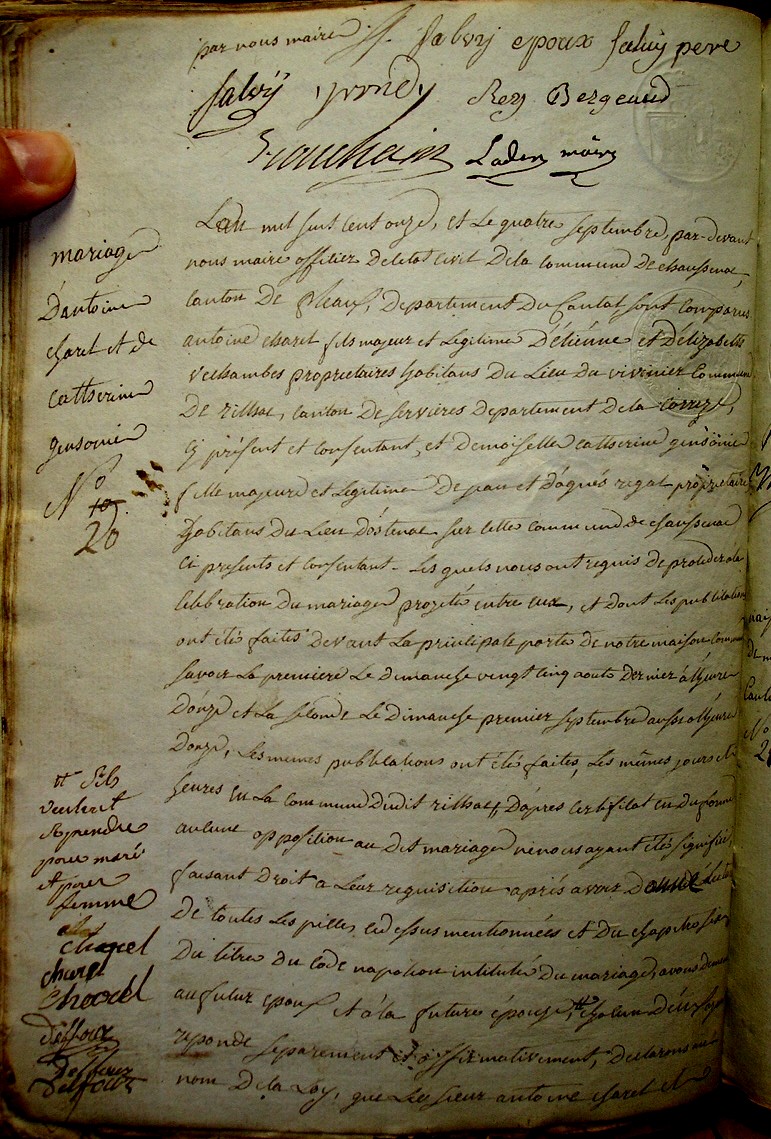 par nous maire Salvy epoux Salvy pere
Salvy Rey Bergeaud
Lader maire
Lan mil huit cent onze, et le quatre septembre, par-devant
nous maire officier de letat civil de la commune de chaussenac,
canton de pleaux, departement du Cantal, sont comparus
antoine charel fils majeur et legitime D'étienne et D'élizabeth
vechambes proprietaires habitans du lieu du vivinier commune
de rilhac, canton de servières departement de la corrèze,
cy présent et consentant, et demoiselle catherine gensonie
fille majeure et legitime de jean et d'agnés regal propriétaire
habitans du lieu d'ostenac sur cette commune de chaussenac
ci presents et consentant - les quels nous ont requis de proceder à la
celebration du mariage projeté entre eux, et dont les publications
ont été faites devant la principale porte de notre maison commune
savoir la premiere le dimanche vingt cinq aout dernier à l'heure
d'onze et la seconde le dimanche premier septembre aussi à l'heure
d'onze, les mêmes publications ont été faites, les mêmes jours et
heures en la commune dudit rilhac, d'apres certificat en due forme
aucune opposition au dit mariage ne nous ayant été signifiée,
faisant droit a leur requisition aprés avoir donné lecture
de toutes les pieces ci dessus mentionnées et du chapitre six
du titre du code napoléon intitulé du mariage, avons demandé
au futur epoux et à la future épouse, chacun d'eux ayant
reponde separement et affirmativement, declarons au
nom de la loy, que le sieur antoine charel et
mariage
D'antoine
charel et de
catherine
gensonie
N.º
19.
20
S'ils
veulent
se prendre
pour mari
et pour
femme
charel
charel
Charel
Deffoux
Deffoux
Deffoux